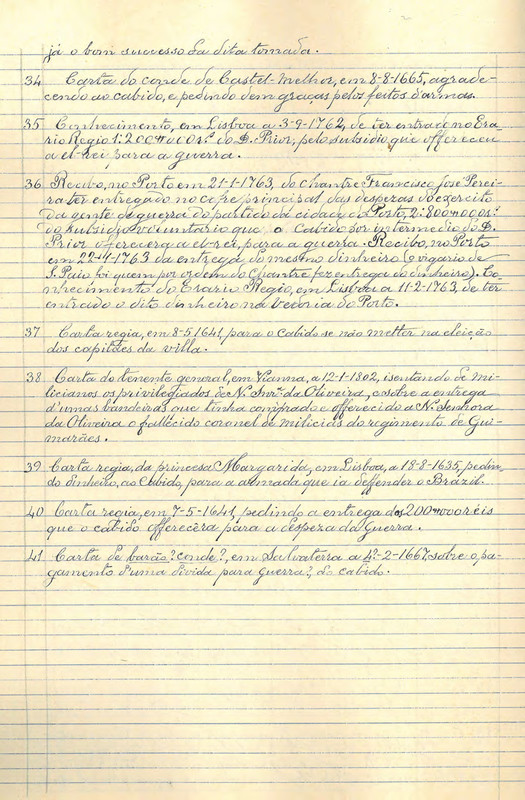 já o bom successo da dita tomada.
34 Carta do conde de Castel-Melhor, em 8-8-1665, agrade-
cendo ao cabido, e pedindo dem graças pelos feitos d'armas.
35 Conhecimento, em Lisboa a 3-9-1762, de ter entrado no Era-
rio Regio 1:200#000rs. do D. Prior, pelo subsidio que offereceu
a el-rei para a guerra.
36 Recibo, no Porto em 21-1-1763, do chantre Francisco José Perei-
ra ter entregado no cofre principal das despezas do exercito
da gente de guerra do partido da cidade do Porto, 2:800#000rs.
do subsidio voluntario que o Cabido por intermedio do D.
Prior offerecera a el-rei, para a guerra. Recibo, no Porto
em 22-1-1763 da entrega do mesmo dinheiro (o vigario de
S. Paio foi quem por ordem do Chantre fez entrega do dinheiro). Co-
nhecimento do Erario Regio, em Lisboa a 11-2-1763, de ter
entrado o dito dinheiro na vedoria do Porto.
37 Carta regia, em 8-5-1641, para o Cabido se não metter na eleição
dos capitães da villa.
38 Carta do tenente general, em Vianna, a 12-1-1802, isentando de mi-
licianos os privilegiados de N. Snrª. da Oliveira, e sobre a entrega
d'umas bandeiras que tinha comprado e offerecido a N. Senhora
da Oliveira o fallecido coronel de milicias do regimento de Gui-
marães.
39 Carta regia, da princesa Margarida, em Lisboa, a 18-8-1635, pedin-
do dinheiro, ao Cabido, para a armada que ia deffender o Brazil.
40 Carta regia, em 7-5-1641, pedindo a entrega dos 200#000 reis
que o cabido offerecêra para a despeza da Guerra.
41 Carta de barão? conde?, em Salvaterra a 4?-2-1667, sobre o pa-
gamento d'uma divida para guerra?, do cabido.